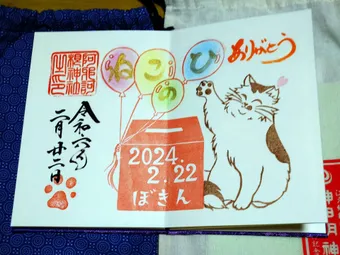 阿邪訶
根神社
之印
令和六年
二月廿二日
ねこのひ
ありがとう
2024.
2.22
ぼきん